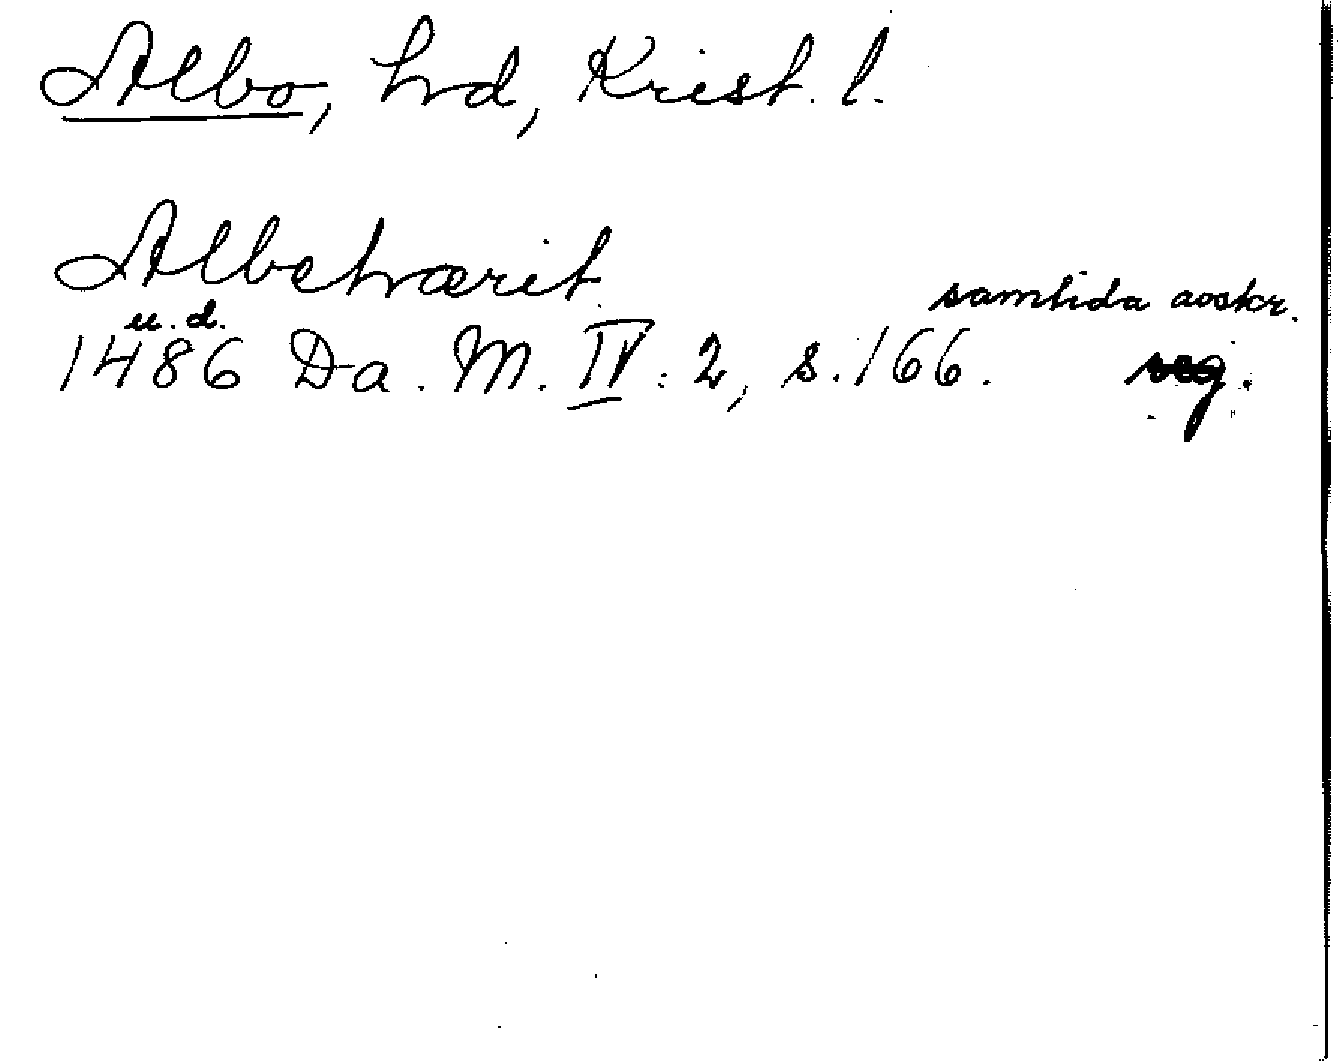 Albo, hrd, Krist. l.
Albehærit samtida avskr.
u. d.
1486 Da. M. IV: 2, s. 166. reg.